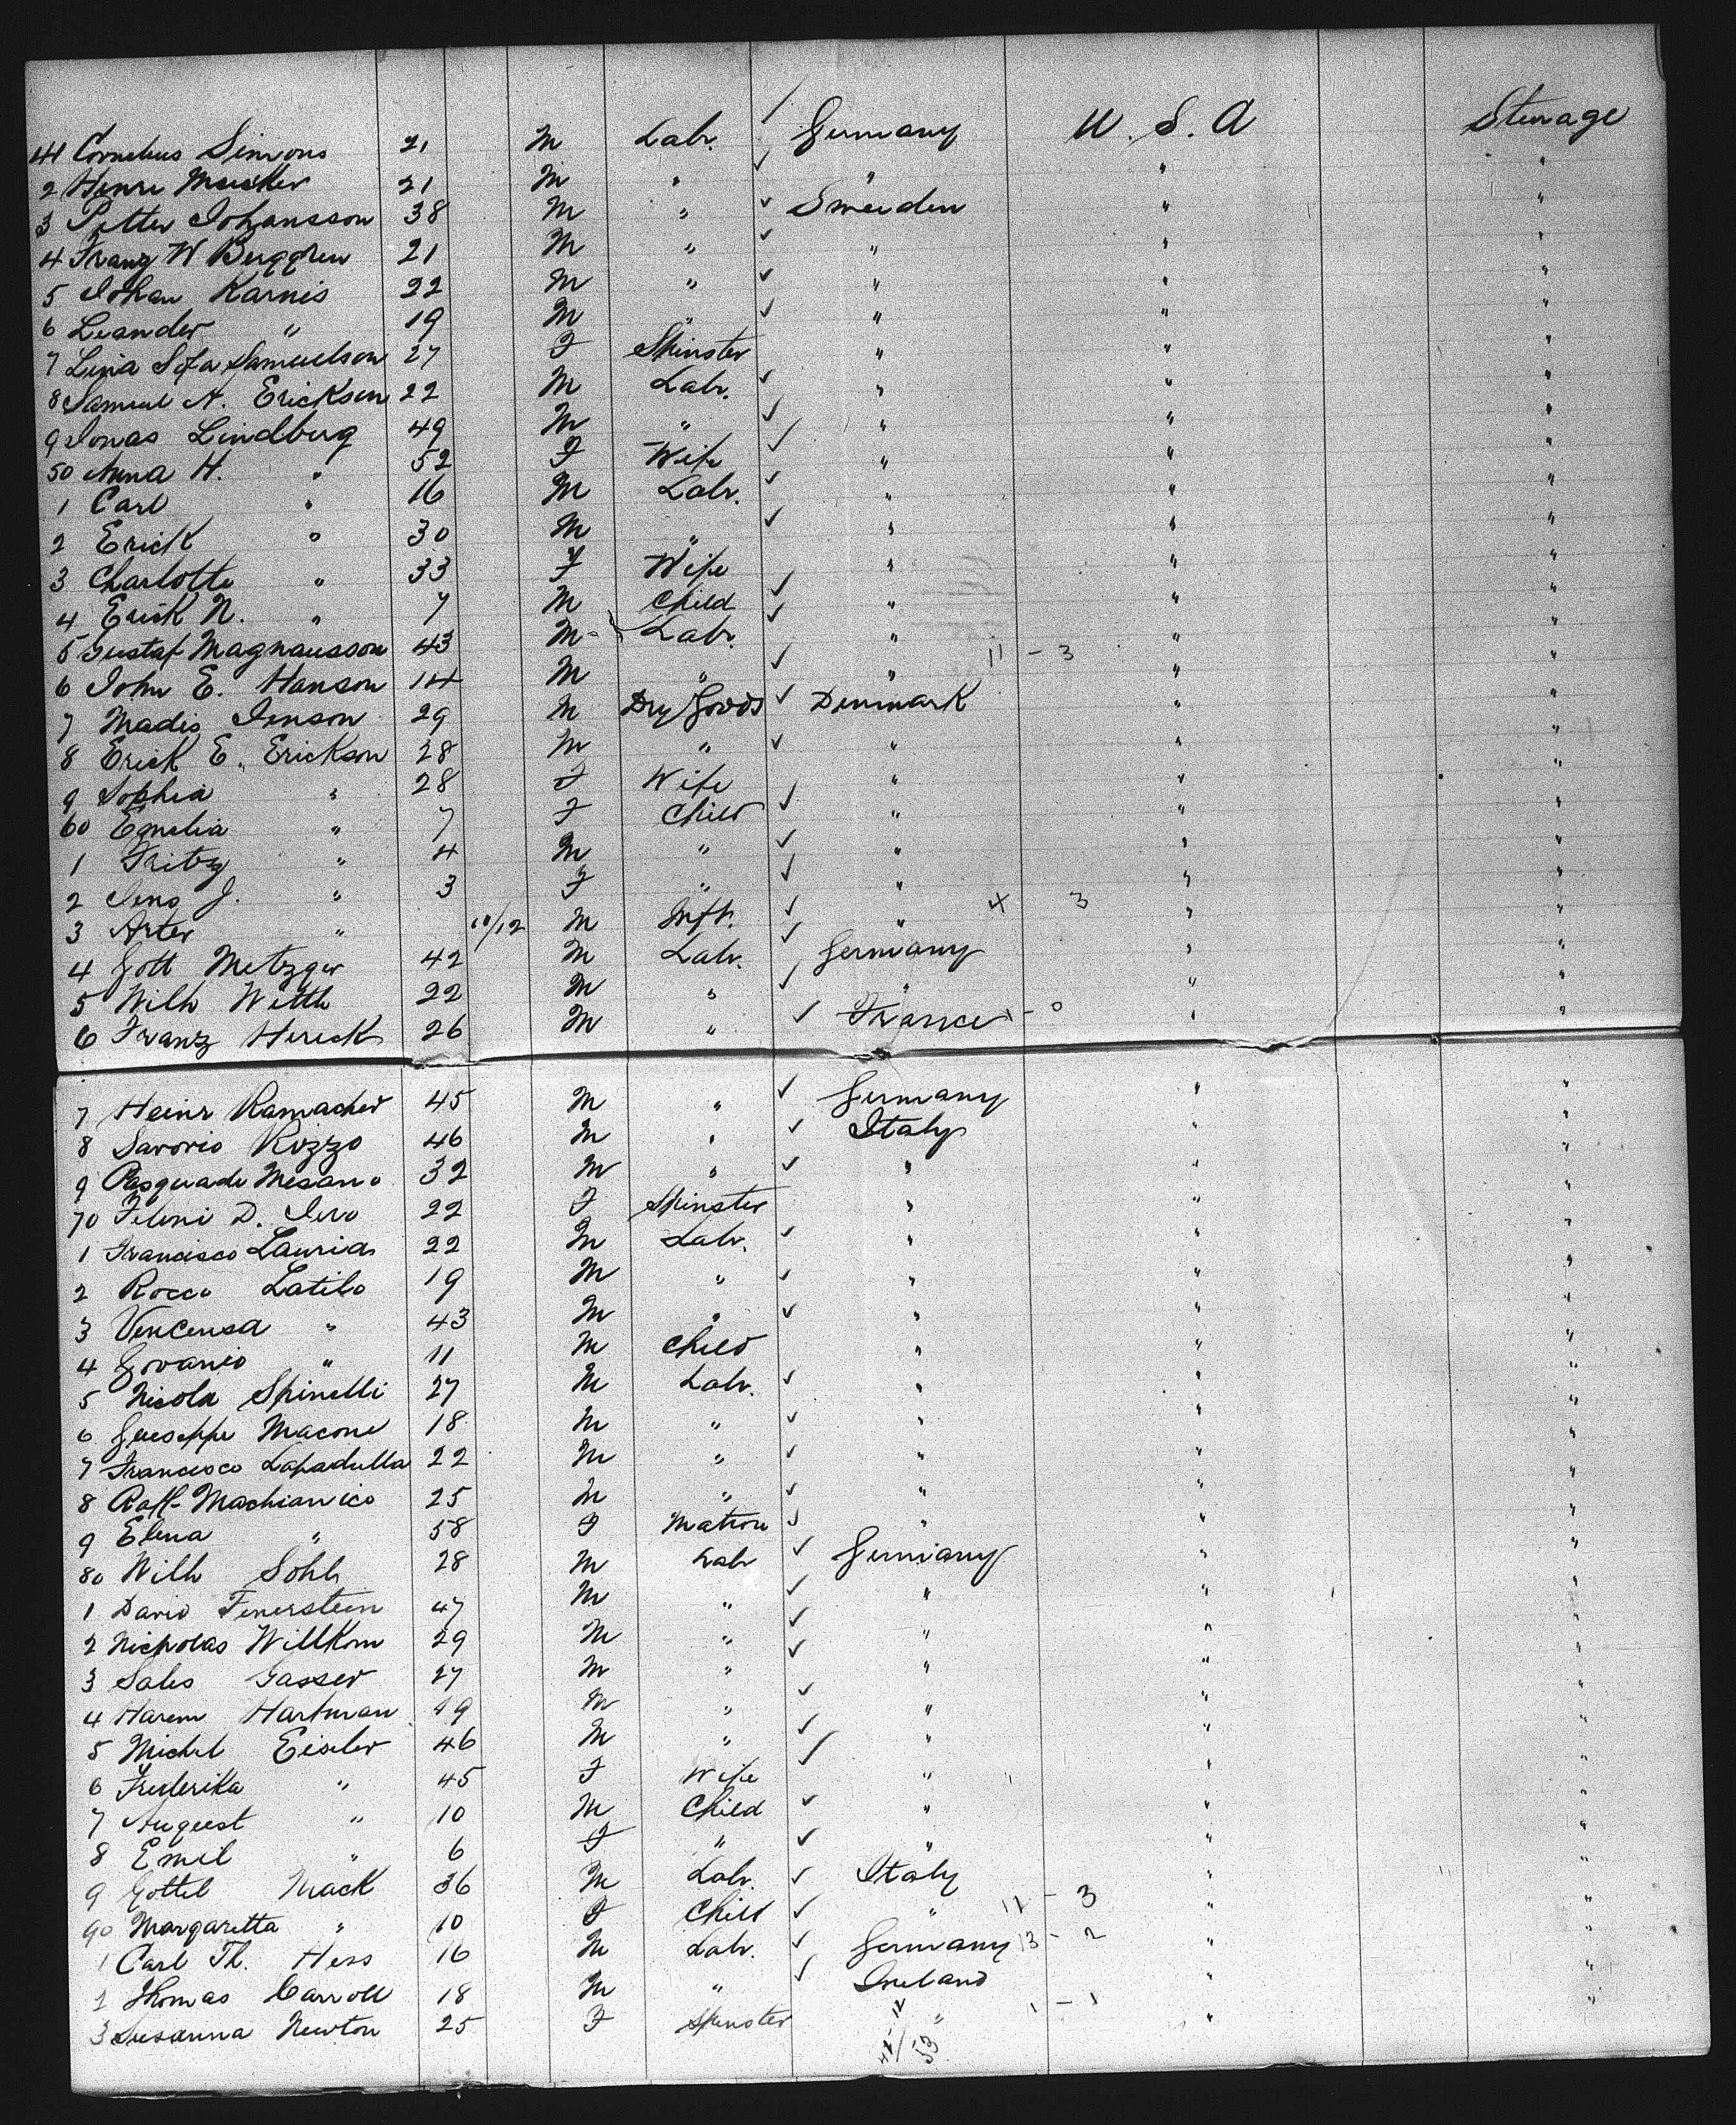 41 Cornelius Simons 21 M Labr. ✓ Germany U. S. A Steerage
2 Henri 21 M " ✓ " " "
3 Petter Johansson 38 M " ✓ Sweeden " "
4 Franz W Berggren 21 M " ✓ " " "
5 Johan Karnis 22 M " ✓ " " "
6 Leander " 19 M " ✓ " " "
7 Lina Sofa Samuelson 27 F Spinster " " "
8 Samuel A. Erickson 22 M Labr. ✓ " " "
9 Jonas Lindberg 49 M " ✓ " " "
50 Anna H. " 52 F Wife ✓ " " "
1 Carl " 16 M Labr. ✓ " " "
2 Erick " 30 M " ✓ " " "
3 Charlotte " 33 F Wife " " "
4 Erick N. " 7 M Child ✓ " " "
5 Gustaf Magnausson 43 M Labr. ✓ " 11 - 3 " "
6 John E. Hanson 14 M " ✓ " " "
7 Madis Jenson 29 M Dry Goods ✓ Denmark " "
8 Erick E. Erickson 28 M " ✓ " " "
9 Sophia " 28 F Wife " " "
60 Emelia " 7 F Child ✓ " " "
1 Fritz " 4 M " ✓ " " "
2 Jens J. " 3 F " ✓ " 4 3 " "
3 Arter " 10/12 M Inft. ✓ " " "
4 Gott Metzger 42 M Labr. ✓ Germany " "
5 Wilh Witth 22 M " ✓ " " "
6 Franz Hereck 26 M " ✓ France 1 - 0 " "
7 Heinr Ramacher 45 M " ✓ Germany " "
8 Savorio Rizzo 46 M " ✓ Italy " "
9 Pasquade Mesano 32 M " ✓ " " "
70 Feloni D. Iero 22 F Spinster " " "
1 Francisco Lauria 22 M Labr. ✓ " " "
2 Rocco Latilo 19 M " ✓ " " "
3 Vencensa " 43 M " ✓ " " "
4 Govanio " 11 M Child " " "
5 Nicola Spinelli 27 M Labr. ✓ " " "
6 Gueseppe Macone 18 M " ✓ " " "
7 Francesco Lapadulla 22 M " ✓ " " "
8 Raff Machianico 25 M " ✓ " " "
9 Elena " 58 F Matron ✓ " " "
80 Wilh Sohl 28 M Labr ✓ Germany " "
1 David Feuerstein 47 M " ✓ " " "
2 Nicholas Willkom 29 M " ✓ " " "
3 Sales Gasser 27 M " ✓ " " "
4 Harem Hartman 19 M " ✓ " " "
5 Michel Eisler 46 M " ✓ " " "
6 Frederika " 45 F Wife ✓ " " "
7 August " 10 M Child ✓ " " "
8 Emil " 6 F " ✓ " " "
9 Gottel Mack 36 M Labr. ✓ Italy " "
90 Margaretta " 10 F Child ✓ " 11 - 3 " "
1 Carl Th. Hess 16 M Labr. ✓ Germany 13 - 2 " "
2 Thomas Carroll 18 M " ✓ Ireland " "
3 Susanna Newton 25 F Spinster " 1 - 1 " "
53